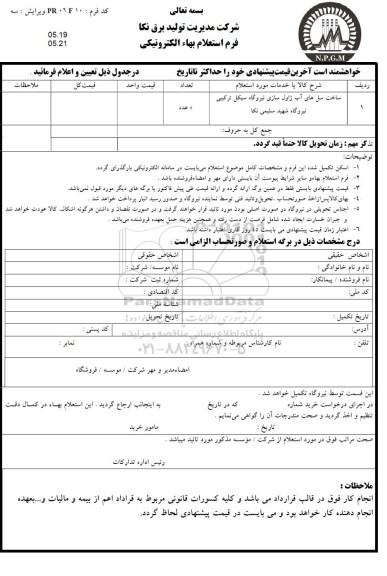 بسمه تعالی
کد فرم : PR ۰۶ F ۱۰ ویرایش : سه
شرکت مدیریت تولید برق نکا
فرم استعلام بهاء الکترونیکی
05.19
05.21
N.P.G.M
خواهشمند است آخرین قیمت پیشنهادی خود را حداکثر تا تاریخ درجدول ذیل تعیین و اعلام فرمائید .
ردیف شرح کالا یا خدمات مورد استعلام تعداد قیمت واحد قیمت کل ملاحظات
۱ ساخت سل های آب ژاول سازی نیروگاه سیکل ترکیبی نیروگاه شهید سلیمی نکا عدد
جمع کل به حروف:
تذکر مهم : زمان تحویل کالا حتماً قید گردد.
توضیحات:
۱- اسکن تکمیل شده این فرم و مشخصات کامل موضوع استعلام می‌بایست در سامانه الکترونیکی بارگذاری گردد.
۲- فرم استعلام بهاء و سایر شرایط پیوست آن بایستی دارای مهر و امضاء فروشنده باشد .
۳- قیمت پیشنهادی بایستی فقط در همین برگه ارائه گردد و ارائه قیمت طی پیش فاکتور یا برگه های دیگر مورد قبول نمی‌باشد.
۴- بهای کالا پس از اخذ صورتحساب ،تحویل و تائید فنی توسط نماینده نیروگاه و صدور رسید انبار پرداخت خواهد شد .
۵- اجناس تحویلی در نیروگاه در صورت اصلی بودن مورد تائید قرار خواهند گرفت. و در صورت نقصان و داشتن هرگونه اشکال، کالا عودت خواهد شد و جبران خسارت ایجاد شده شامل فرصت از دست رفته و همچنین هزینه حمل بعهده فروشنده می‌باشد .
۶- اعتبار زمان قیمت پیشنهادی می بایست ۴۵ روز کاری اعتبار داشته باشد.
درج مشخصات ذیل در برگه استعلام و صورتحساب الزامی است :
اشخاص حقیقی اشخاص حقوقی
نام و نام خانوادگی : نام موسسه/ شرکت :
نام فروشنده / پیمانکار: شماره ثبت شرکت :
کد ملی: کد اقتصادی :
شناسه ملی
تاریخ تکمیل : تاریخ تحویل:
آدرس: کد پستی :
تلفن : نام کارشناس مربوطه و شماره همراه: نمابر :
ParsNamadData
پایگاه اطلاع رسانی مناقصه و مزایده
۰۲۱-۸۸۳۴۹۶۷۰-۵
امضاء مدیر و مهر شرکت / موسسه / فروشگاه
این قسمت توسط نیروگاه تکمیل خواهد شد .
در اجرای درخواست خرید شماره که در تاریخ به اینجانب ارجاع گردید . این استعلام بهاء در کمال دقت تنظیم و اخذ گردید و صحت مندرجات آن را گواهی می‌نمایم .
تاریخ : مامور خرید
صحت مراتب فوق در مورد استعلام از شرکت / مؤسسه مذکور مورد تائید میباشد .
رئیس اداره تدارکات
ملاحظات :
انجام کار فوق در قالب قرارداد می باشد و کلیه کسورات قانونی مربوط به قراداد اعم از بیمه و مالیات و...بعهده انجام دهنده کار خواهد بود و می بایست در قیمت پیشنهادی لحاظ گردد.